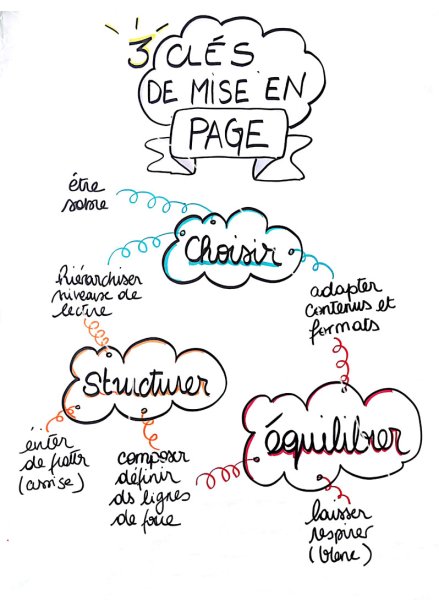 3 CLÉS
DE MISE EN
PAGE
être
sobre
Choisir
hiérarchiser
niveaux de
lecture
adapter
contenus et
formats
Structurer
équilibrer
éviter
de flotter
(assise)
composer
définir
ds lignes
de force
laisser
respirer
(blanc)